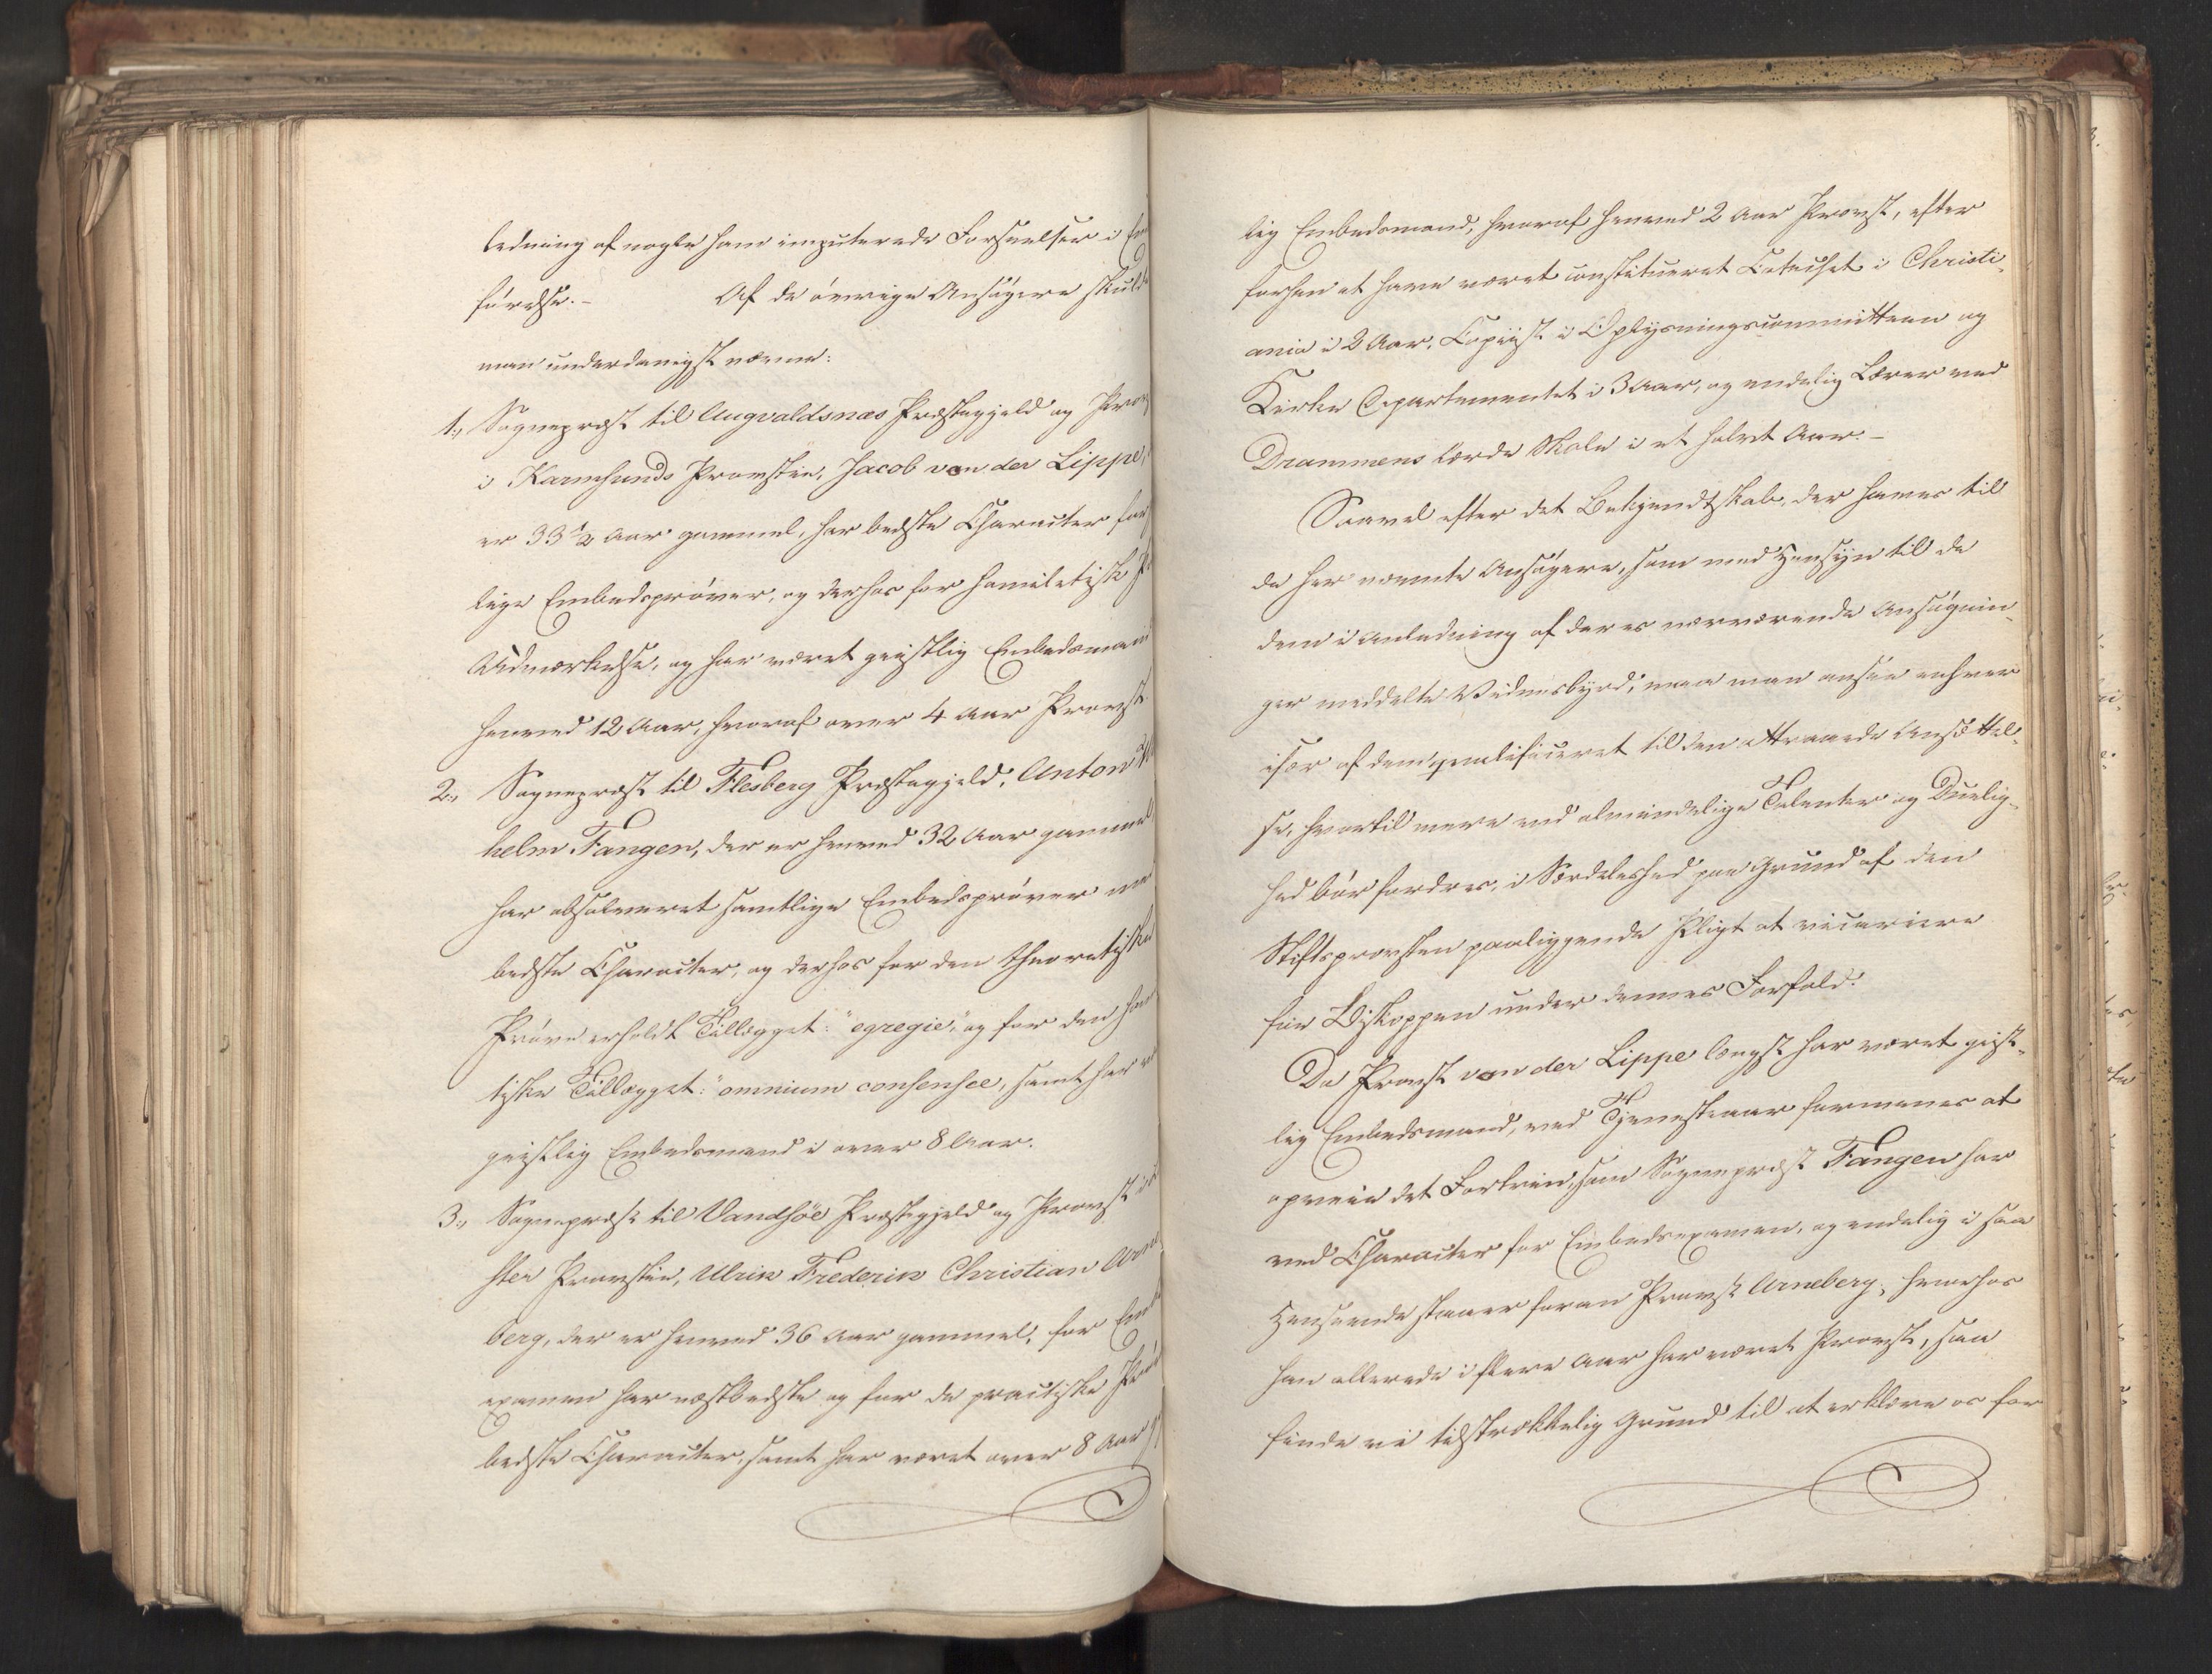 ledning af nogle ham imputerede Forseelser i Em
førelse. – Af de øvrige Ansøgere skulde
man underdanigst nævne:
1., Sognepræst til Augvaldsnæs Præstegjeld og Prov
i Karmsunds Provstie, Jacob von der Lippe,
er 33½ Aar gammel, har bedste Character for
lige Embedsprøver, og derhos for homiletisk
Udmærkelse, og har været geistlig Embedsmand
henved 12 Aar, hvoraf over 4 Aar Provst
2., Sognepræst til Flesberg Præstegjeld, Anton
helm Fangen, der er henved 32 Aar gammel
har absolveret samtlige Embedsprøver me
bedste Character, og derhos for den theoretiske
Prøve erholdt Tillægget: "egregie," og for den ho
tiske Tillægget: "omnium consensee, samt har
geistlig Embedsmand i over 8 Aar.
3., Sognepræst til Vandsøe Præstegjeld og Provst i
ster Provstie, Ulrik Frederik Christian Arne
berg, der er henved 36 Aar gammel, for Em
examen har næstbedste og for de practiske Prø
bedste Character, samt har været over 8 Aar
lig Embedsmand, hvoraf henved 2 Aar Provst, efter
forhen at have været constitueret Catechet i Christi-
ania i 2 Aar, Copiist i Oplysningscommitteen og
Kirke Departementet i 3 Aar, og endelig Lærer ved
Drammens lærde Skole i et halvt Aar. –
Saavel efter det Bekjendtskab, der haves til
de her nævnte Ansøgere, som med Hensyn til de
dem i Anledning af deres nærværende Ansøgnin-
ger meddelte Vidnesbyrd, maa man ansee enhver
især af dem qualificeret til den attraaede Ansættel-
se, hvortil mere end almindelige Talenter og Duelig-
hed bør fordres, i Særdeleshed paa Grund af den
Stiftsprovsten paaliggende Pligt at vicariere
for Biskoppen under dennes Forfald.
Da Provst von der Lippe længst har været geist-
lig Embedsmand, ved Tjenesteaar formenes at
opveie det Fortrin, som Sognepræst Fangen har
ved Character for Embedsexamen, og endelig i saa
Henseende staaer foran Provst Arneberg, hvorhos
han allerede i flere Aar har været Provst, saa
finde vi tilstrækkelig Grund til at erklære os for